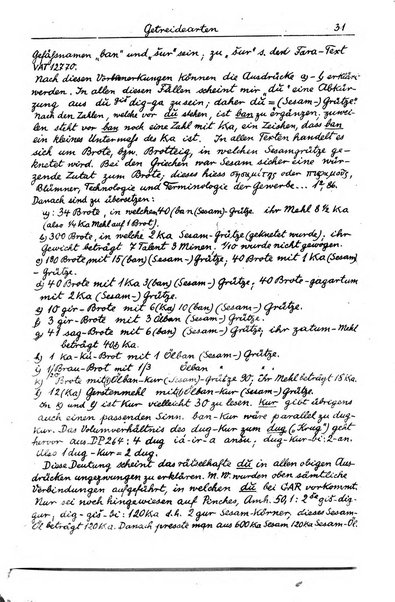 Getreidearten 31
Gefäßnamen „ban" und „šur" sein; zu „šur" s. den Fara-Text
VAT 12770.
Nach diesen Vorbemerkungen können die Ausdrücke a)-l) erklärt
werden. In allen diesen Fällen scheint mir „dŭ" eine Abkür-
zung aus dŭ giš dig-ga zu sein; daher dŭ = (Sesam-)Grütze.
Nach den Zahlen, welche vor dŭ stehen, ist ban zu ergänzen, zuwei-
len steht vor ban noch eine Zahl mit Ka, ein Zeichen, dass ban
ein kleines Unterteil des Ka ist. In allen Texten handelt es
sich um Brote, bzw. Brotteig, in welchen Sesamgrütze ge-
knetet wird. Bei den Griechen war Sesam sicher eine wür-
zende Zutat zum Brote, dieses hiess σησαμίτης oder
Blümner, Technologie und Terminologie der Gewerbe... 1² 86.
Danach sind zu übersetzen:
a) : 34 Brote, in welchen 40 (ban) (Sesam)-Grütze ihr Mehl 8½ Ka
(also ¼ Ka Mehl auf 1 Brot).
b) 300 Brote, in welche 2 Ka Sesam-Grütze (geknetet wurde), ihr
Gewicht beträgt 7 Talent 3 Minen. 110 wurde nicht gewogen.
c) 120 Brote, mit 15 (ban) (Sesam)-Grütze, 40 Brote mit 1 Ka (Sesam)
-Grütze.
d) 40 Brote mit 1 Ka 3 (ban) (Sesam-) Grütze, 40 Brote-gagartum
mit 2 Ka (Sesam-) Grütze.
e) 10 gir-Brote mit 6 (Ka) 10 (ban) (Sesam-) Grütze.
f) 3 gir-Brote mit 3 Ölban (Sesam-) Grütze.
g) 41 sag-Brote mit 6 (ban) (Sesam-) Grütze, ihr zatum-Mehl
beträgt 40 Ka.
h) 1 ka-ku-Brot mit 1 Ölban (Sesam-) Grütze.
i) 1 Brau-Brot mit 1/3 Ölban " "
k) Brote mit Ölban-Kur (Sesam-) Grütze 90; ihr Mehl beträgt 15 Ka.
l) 12 (Ka) Gerstenmehl mit Ölban-Kur (Sesam-) Grütze.
In k) und l) ist Kur vielleicht 30 zu lesen. Kur gibt übrigens
auch einen passenden Sinn. ban-Kur wäre parallel zu dug-
Kur. Das Volumverhältnis des dug-Kur zum dug („Krug") geht
hervor aus DP 264: 4 dug iá-ir-a ansu; dug-Kur-bi: 2-an.
Also 1 dug-Kur = 2 dug.
Diese Deutung scheint das rätselhafte dŭ in allen obigen Aus-
drücken ungezwungen zu erklären. M. W. wurden oben sämtliche
Verbindungen aufgeführt, in welchen dŭ bei GAR vorkommt.
Nur sei noch hingewiesen auf Pinches, Amh. 50, 1: 2 še giš-dig-
gur; dig-giš-bi: 120 Ka d.h. 2 gur Sesam-Körner, dieses Sesam-
Öl beträgt 120 Ka. Danach presste man aus 600 Ka Sesam 120 Ka Sesam-Öl.